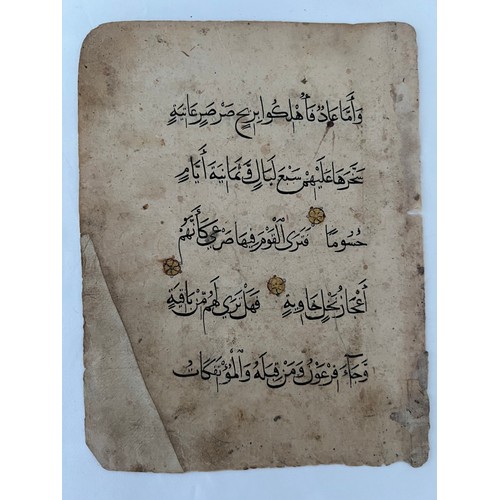 وَأَمَّا عَادٌ فَأُهْلِكُوا بِرِيحٍ صَرْصَرٍ عَاتِيَةٍ
سَخَّرَهَا عَلَيْهِمْ سَبْعَ لَيَالٍ وَثَمَانِيَةَ أَيَّامٍ
حُسُومًا فَتَرَى الْقَوْمَ فِيهَا صَرْعَى كَأَنَّهُمْ
أَعْجَازُ نَخْلٍ خَاوِيَةٍ فَهَلْ تَرَى لَهُمْ مِنْ بَاقِيَةٍ
وَجَاءَ فِرْعَوْنُ وَمَنْ قَبْلَهُ وَالْمُؤْتَفِكَاتُ